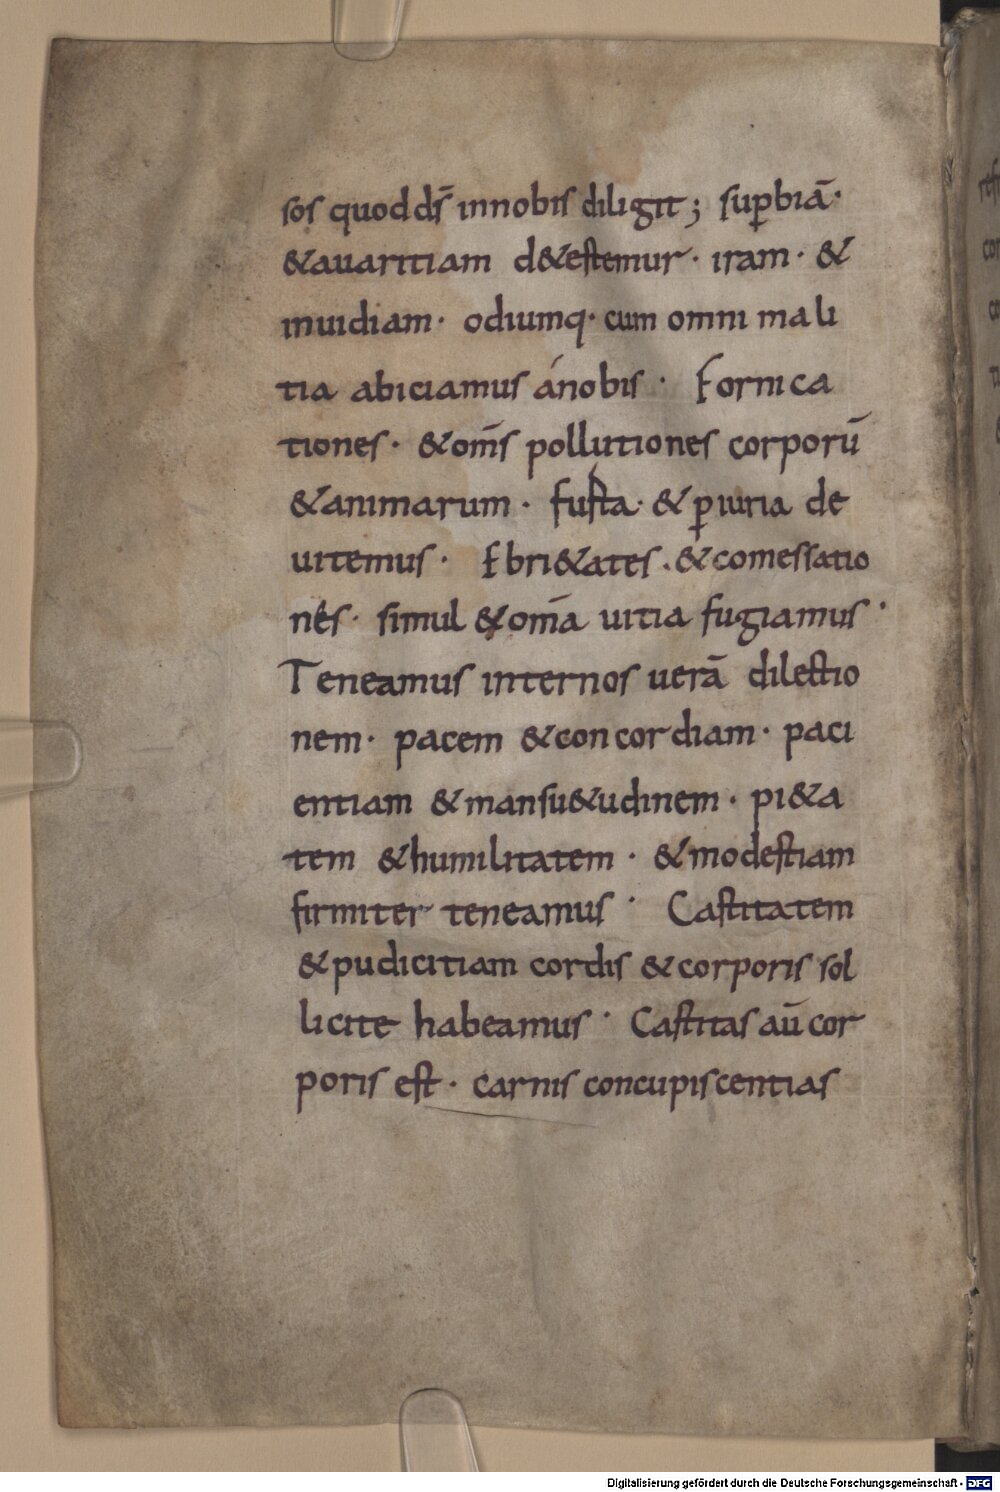 sos quodds̄ innobis diligit; sup̄biā·
&auaritiam d&estemur· iram· &
inuidiam· odiumq· cum omni mali
tia abiciamus ánobis · Fornica
tiones· &om̄s pollutiones corporū
&animarum· fusta· &p̄iuria de
uitemus· Ebri&ates· &comessatio
nes· simul &om̄a uitia fugiamus·
Teneamus internos uerā dilectio
nem· pacem &concordiam· paci
entiam &mansu&udinem· pi&a
tem &humilitatem · &modestiam
firmiter teneamus · Castitatem
&pudicitiam cordis &corporis sol
licite habeamus · Castitas aū cor
poris est· carnis concupiscentias
Digitalisierung gefördert durch die Deutsche Forschungsgemeinschaft - DFG